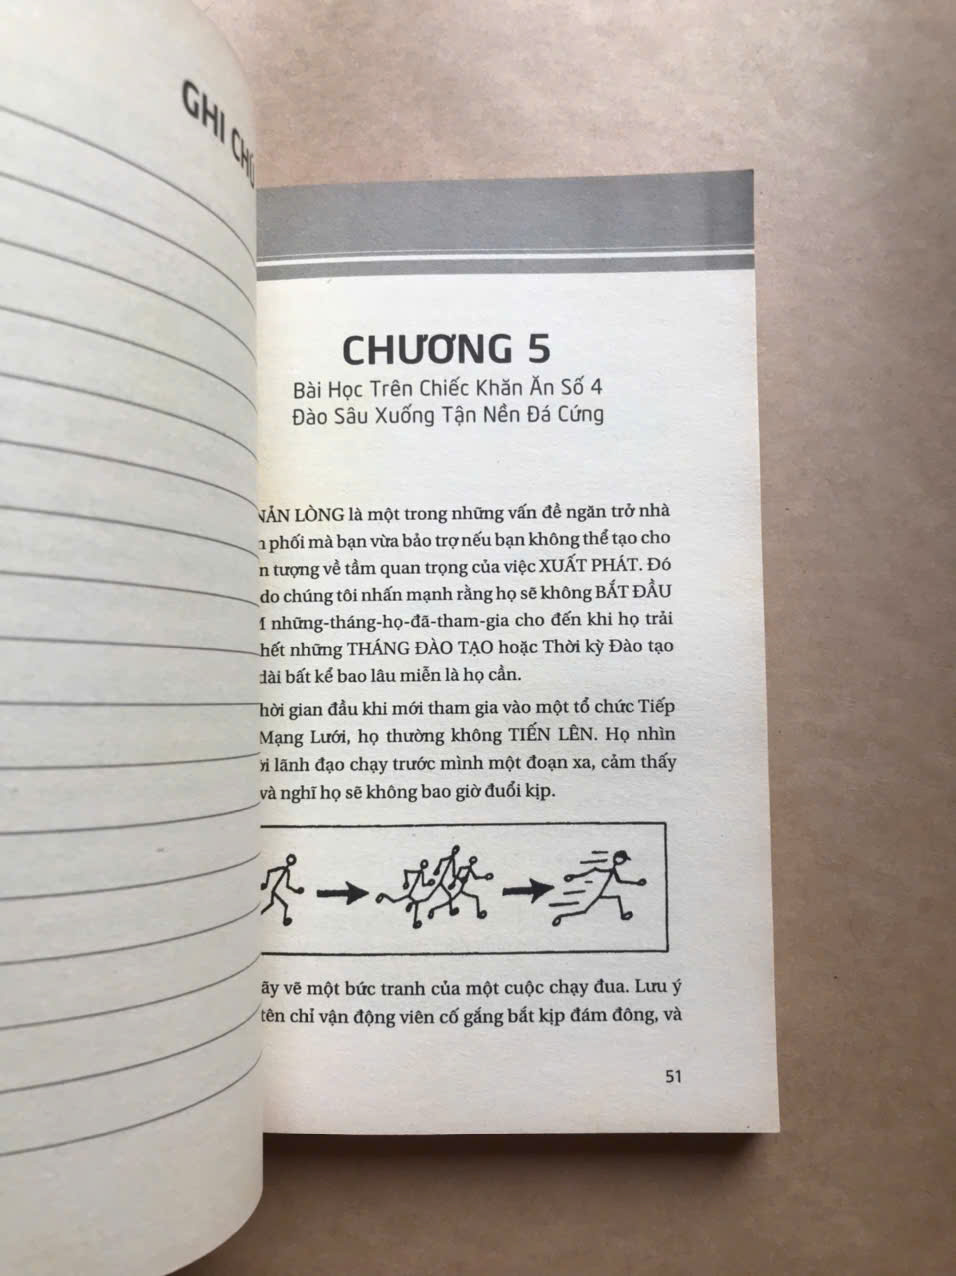 GHI CHÚ
CHƯƠNG 5
Bài Học Trên Chiếc Khăn Ăn Số 4
Đào Sâu Xuống Tận Nền Đá Cứng
NẢN LÒNG là một trong những vấn đề ngăn trở nhà
phối mà bạn vừa bảo trợ nếu bạn không thể tạo cho
tượng về tầm quan trọng của việc XUẤT PHÁT. Đó
do chúng tôi nhấn mạnh rằng họ sẽ không BẮT ĐẦU
những-tháng-họ-đã-tham-gia cho đến khi họ trải
hết những THÁNG ĐÀO TẠO hoặc Thời kỳ Đào tạo
dài bất kể bao lâu miễn là họ cần.
gian đầu khi mới tham gia vào một tổ chức Tiếp
Mạng Lưới, họ thường không TIẾN LÊN. Họ nhìn
lãnh đạo chạy trước mình một đoạn xa, cảm thấy
và nghĩ họ sẽ không bao giờ đuổi kịp.
vẽ một bức tranh của một cuộc chạy đua. Lưu ý
tên chỉ vận động viên cố gắng bắt kịp đám đông, và
51